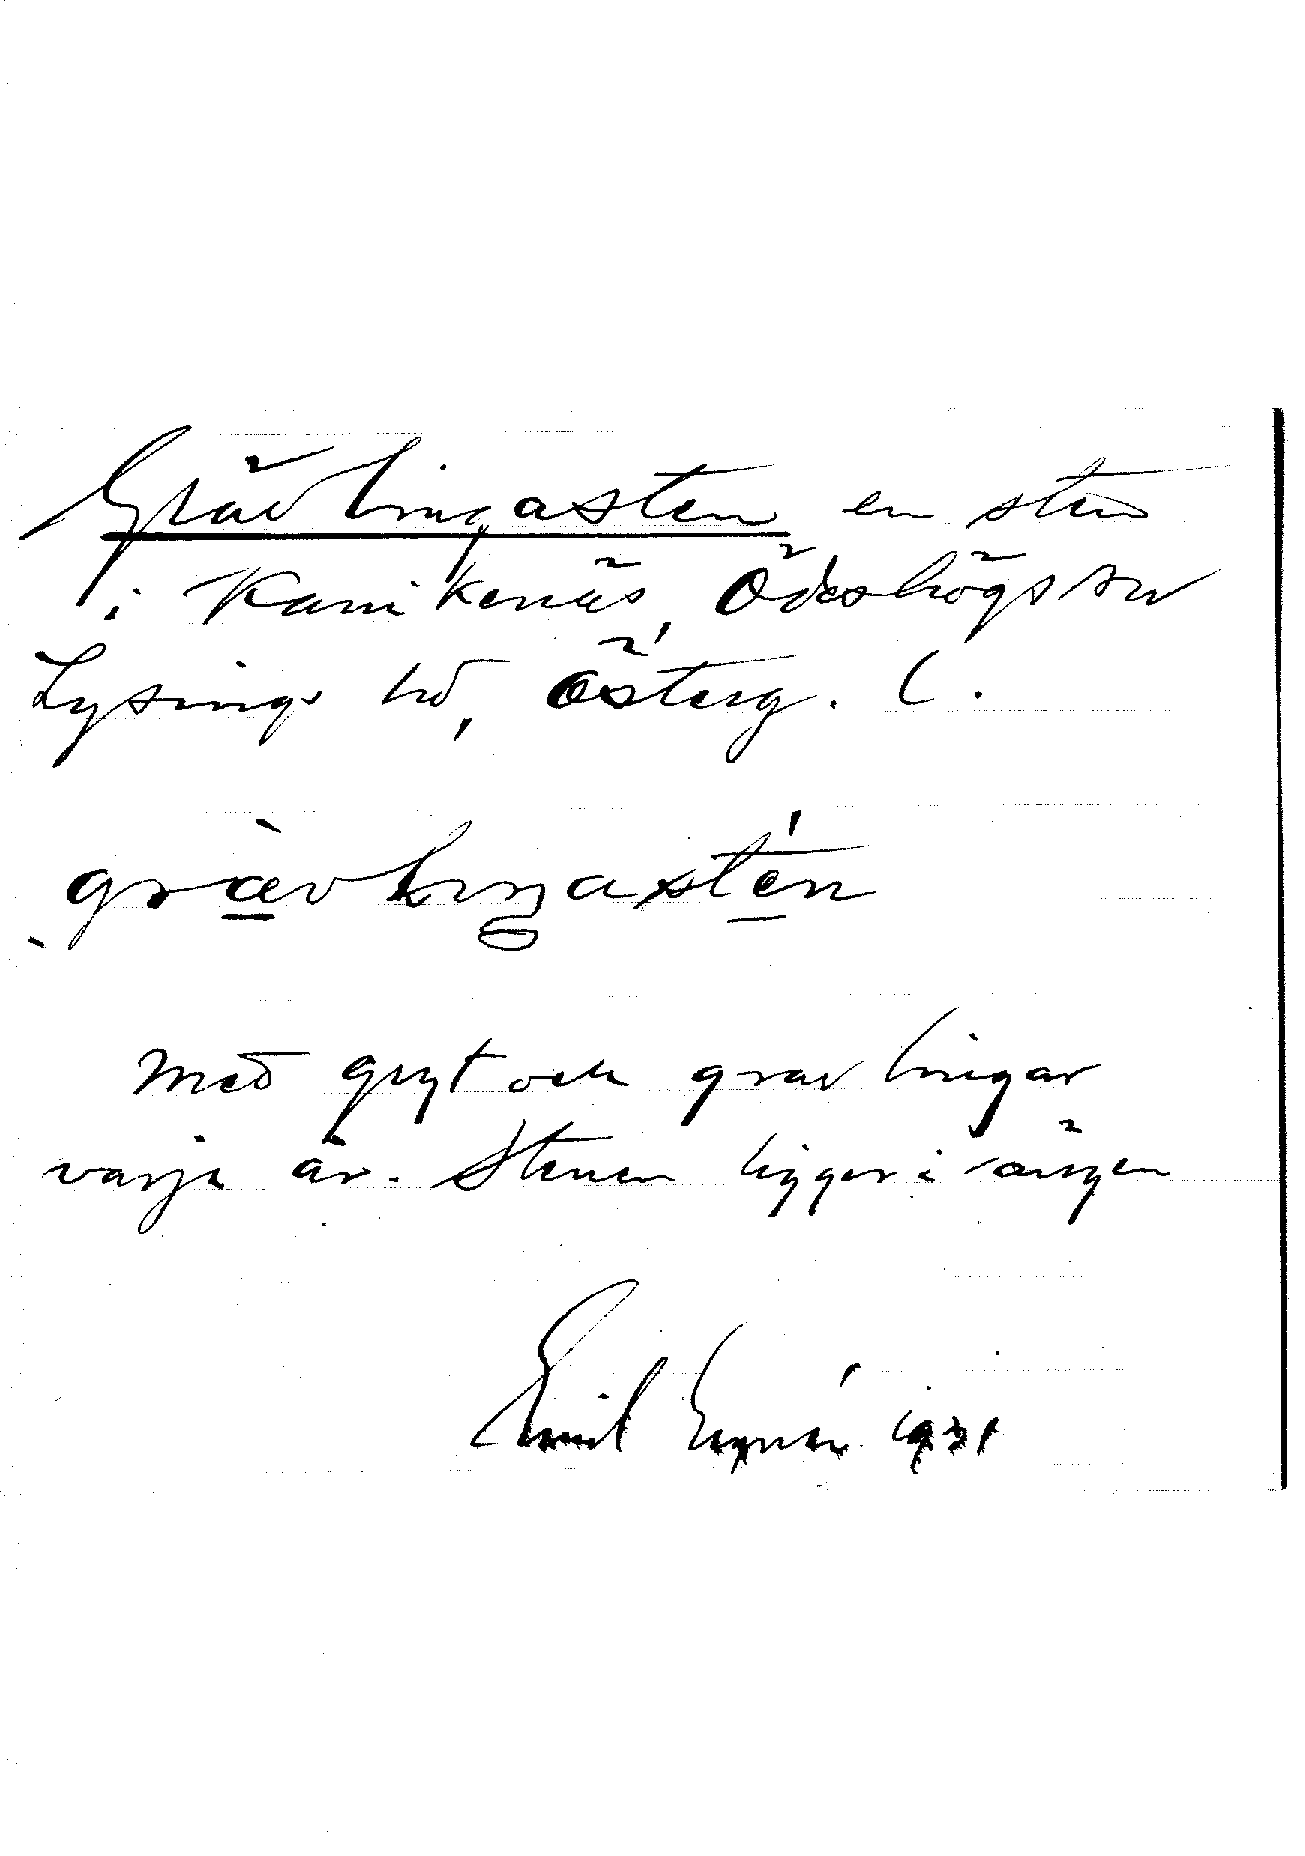 Grävlingasten en sten
i Kanikenäs, Ödeshögs sn
Lysings hd, Österg. l.
grävlingastén
Med gryt och gravlingar
varje år. Stenen ligger i ängen
Emil 1931